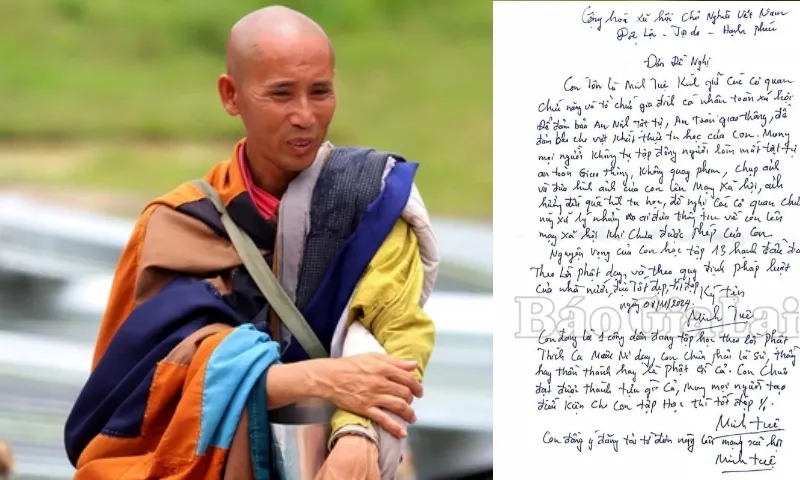 Cộng hoà xã hội Chủ Nghĩa Việt Nam
Độc Lập - Tự do - Hạnh phúc
Đơn Đề Nghị
Con Tên Là Minh Tuệ Kính gửi Các Cơ quan
chức năng và tổ chức gia đình cá nhân toàn xã hội
Để đảm bảo An Ninh Trật tự, An Toàn giao thông, để
đảm bảo cho việc khất thực tu học của Con. Mong
mọi người không tụ tập đông người làm mất trật tự
an toàn Giao thông, không quay phim, chụp ảnh
và đưa hình ảnh của con lên Mạng Xã hội, ảnh
hưởng đến quá trình tu học, đề nghị Các Cơ quan chức
năng xử lý những đưa thông tin về con lên
mạng xã hội khi chưa được phép của Con
Nguyện Vọng của Con học tập 13 hạnh đầu đà
Theo lời phật dạy, và theo quy định pháp luật
của nhà nước, Tốt đẹp, Ký tên
ngày 2024
Minh Tuệ
Báo Gia Lai
Con đang là 1 công dân đang tập học theo lời phật
Thích Ca Mâu Ni dạy, Con chưa phải là sư, thầy
hay thần thánh hay là phật Gì Cả. Con Chưa
đạt được thành tựu gì Cả, Mong mọi người tạo
điều kiện Cho Con tập Học thì tốt đẹp
Minh Tuệ
Con đồng ý đăng tải tờ đơn này lên mạng xã hội
Minh Tuệ